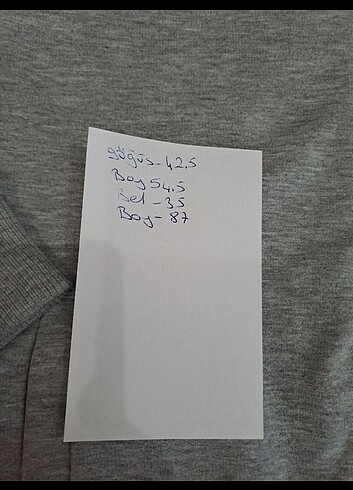 göğüs-42.5
Boy 54.5
Bel -35
Boy- 87